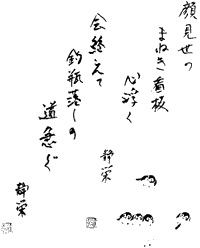 顔見世の
まねき看板
心浮く
静栄
会終えて
釣瓶落しの
道急ぐ
静栄